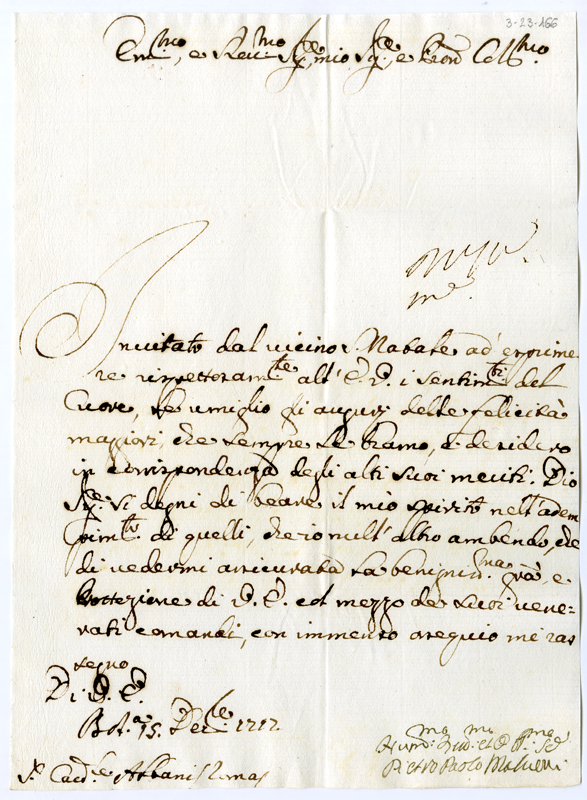 3-23-166
Em.mo, e Reu.mo Sig.e mio Sig.e e Pron Col.mo
Inuitato dal uicino S. Natale ad esprime
re rispettosam.te all' E. V. i sentim.ti del
Cuore, le umilio gli augurj delle felicità
maggiori, che sempre le bramo, e desidero
in corrispondenza degli alti suoi meriti. Dio
Sig.e si degni di beare il mio spirito nell' adem
pim.to di quelli, che io null' altro ambendo, che
di uedermi assicurata la benignis.ma gra, e
Protezione di V. E. col mezzo de suoi uene=
rati comandi, con immenso ossequio mi ras
segno
Di V. E.
15. Dec.e 1717
S.r Card.e Albani Roma
Hum.mo
Pietro Paolo